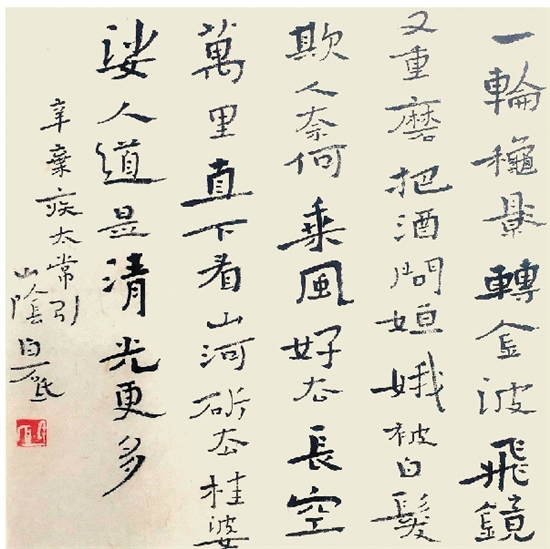 一輪穐景轉金波飛鏡
又重磨把酒問姮娥被白髮
欺人奈何乘風好去長空
萬里直下看山河斫去桂婆
娑人道是清光更多
辛棄疾太常引
山陰白砥